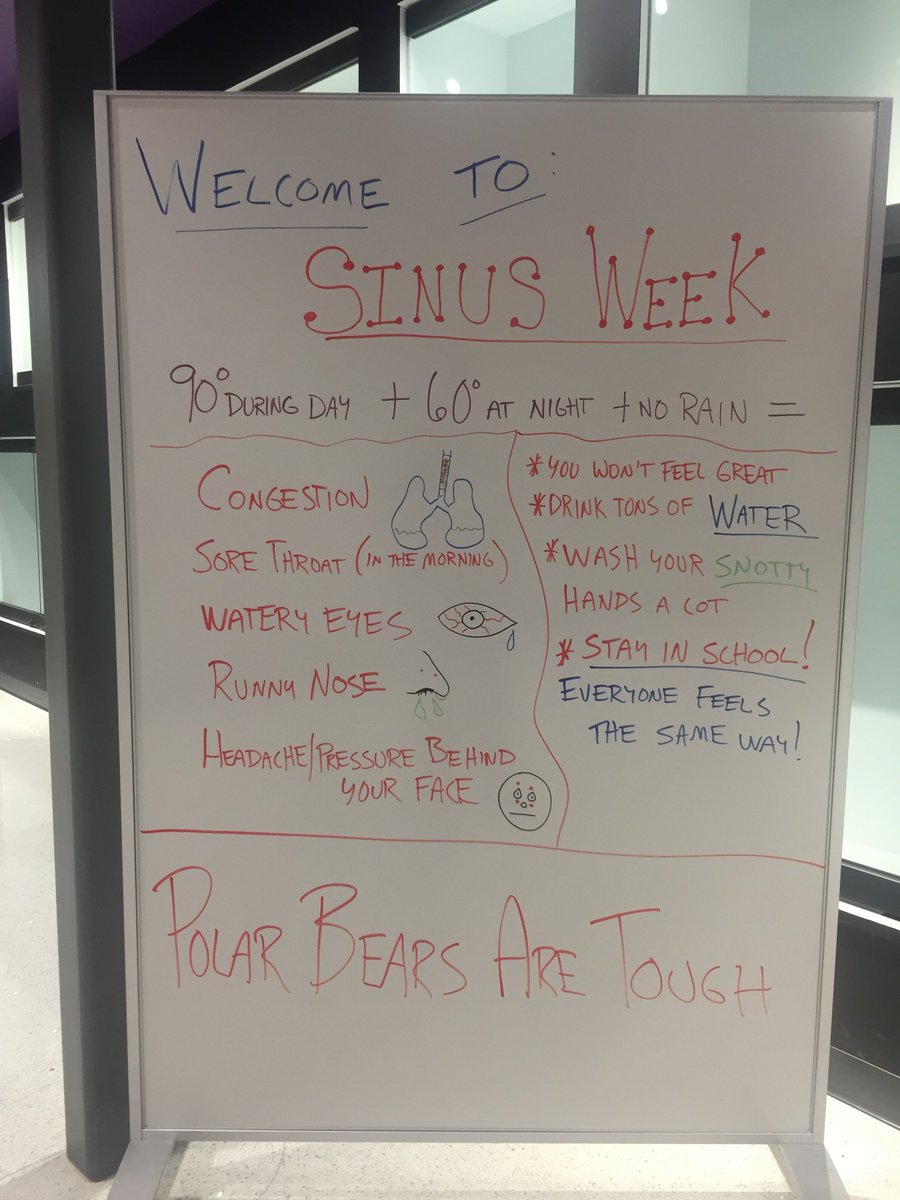 WELCOME TO:
SINUS WEEK
90° DURING DAY + 60° AT NIGHT + NO RAIN =
CONGESTION
SORE THROAT (IN THE MORNING)
WATERY EYES
RUNNY NOSE
HEADACHE/PRESSURE BEHIND
YOUR FACE
*YOU WON'T FEEL GREAT
*DRINK TONS OF WATER
*WASH YOUR SNOTTY
HANDS A LOT
*STAY IN SCHOOL!
EVERYONE FEELS
THE SAME WAY!
POLAR BEARS ARE TOUGH